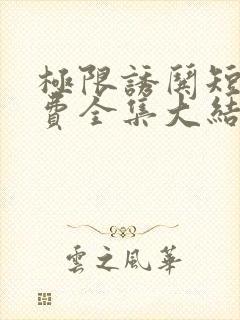 極限誘關短
費全集大結
雲之風華